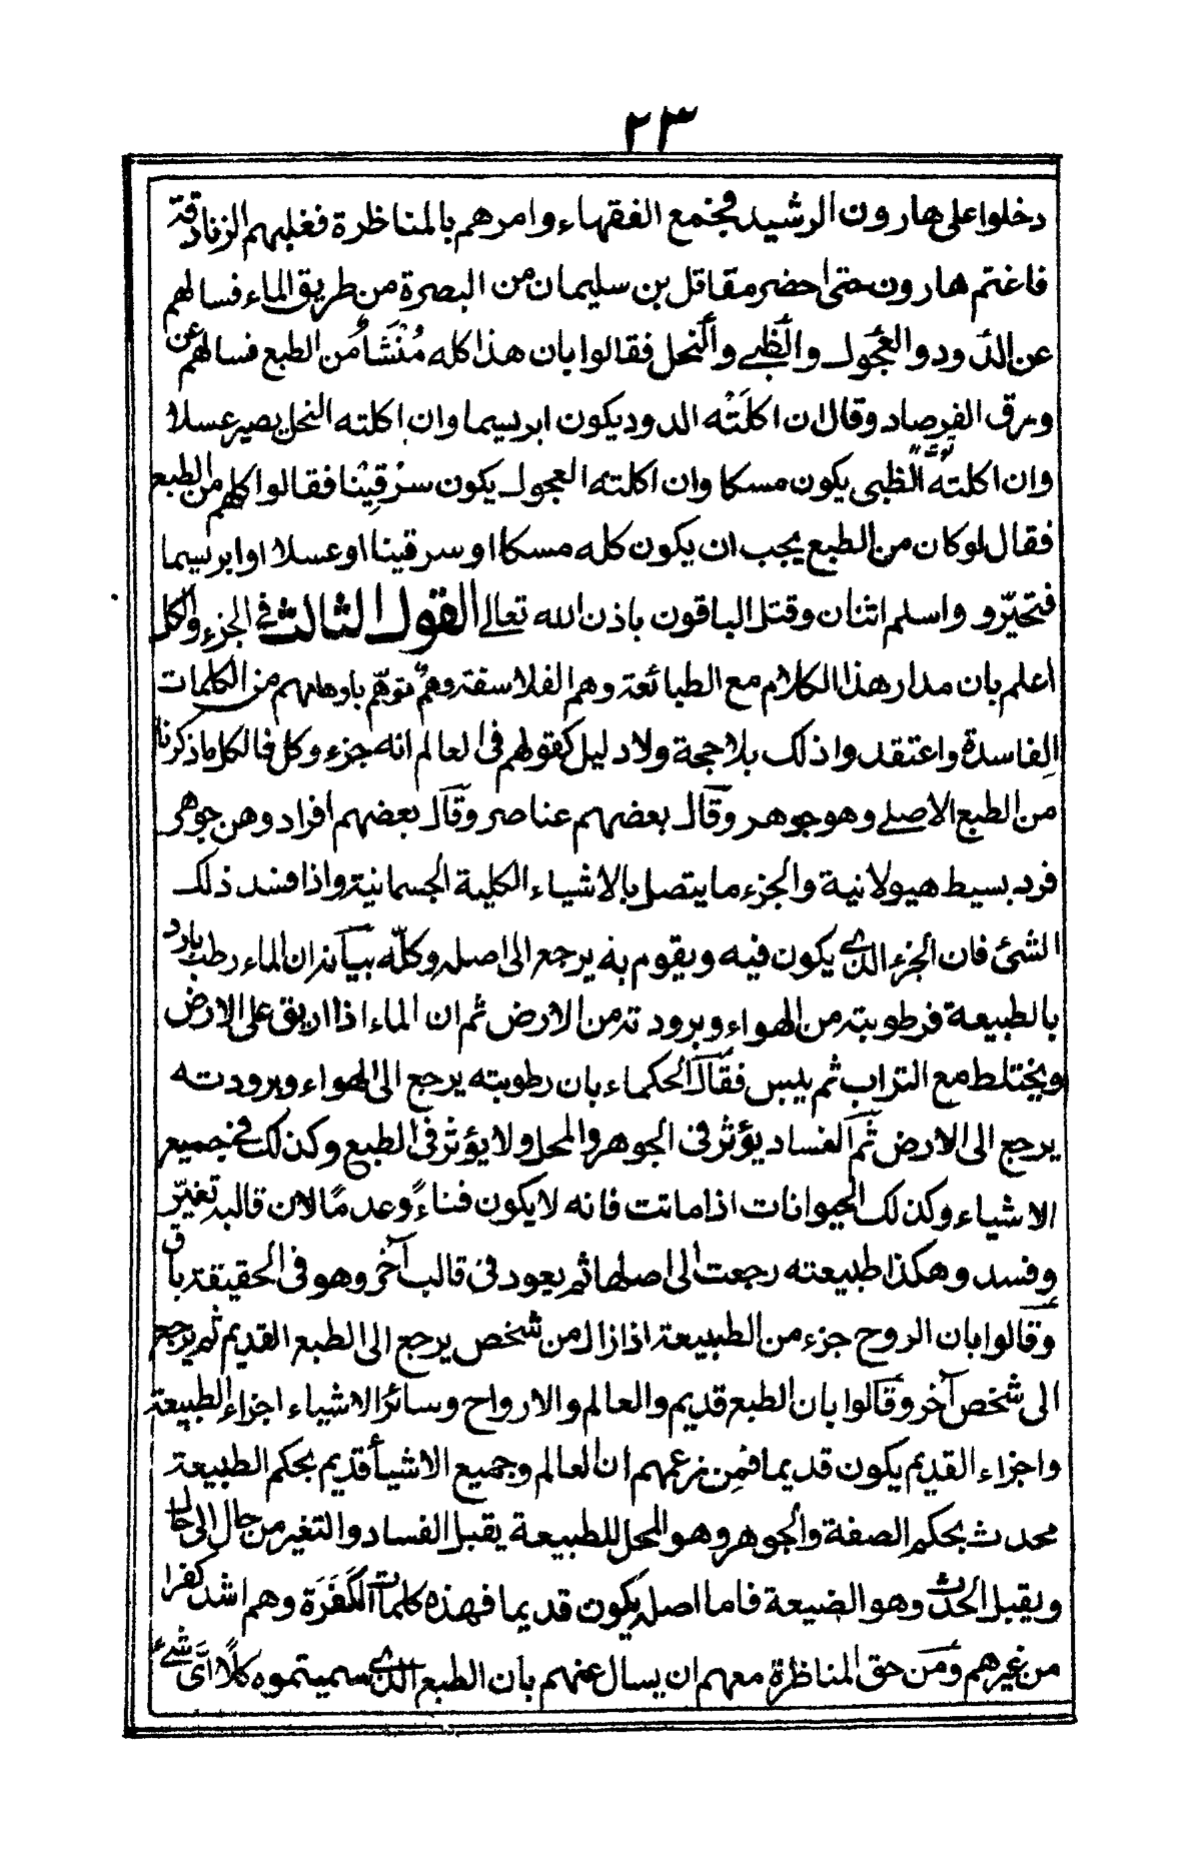 ٢٣
دخلوا على هارون الرشيد فجمع الفقهاء وامرهم بالمناظرة فغلبهم الزنادقة
فاغتم هارون حتى احضر مقاتل بن سليمان من البصرة من طريق الماء فسالهم
عن الدَّود والعجول والظَبے والنحل فقالوا بان هذا كله مُنْشَأٌ من الطبع فسالهم عن
ورق الفرصاد وقال ان اكلَتْه الدود يكون ابريسما وان اكلته النحل يصير عسلا
وان اكلته الظبى يكون مسكا وان اكلته العجول يكون سرْقِيْنا فقالوا كلهم من الطبع
فقال لو كان من الطبع يجب ان يكون كله مسكا او سرقينا او عسلا او ابريسما
فتحيّرو واسلم اثنان وقتل الباقون باذن الله تعالى القول الثالث فے الجزء والكل
اعلم بان مدار هذا الكلام مع الطبائعة وهم الفلاسفة وهم توهّم باوهامهم من الكلمات
الفاسدة واعتقدوا ذلك بلا حجة ولا دليل كقولهم فى العالم انه جزء وكل فالكل ما ذكرنا
من الطبع الاصلے وهو جوهر وقال بعضهم عناصر وقال بعضهم أفراد وهن جوهر
فرد بسيط هيولانية والجزء ما يتصل بالاشياء الكلية الجسمانية واذا فسد ذلك
الشئ فان الجزء الذى يكون فيه ويقوم به يرجع الى اصله وكلّه بيانه ان الماء رطب بارد
بالطبيعة فرطوبته من الهواء وبرودته من الارض ثم ان الماء اذا اريق على الارض
ويختلط مع التراب ثم يبس فقال الحكماء بان رطوبته يرجع الى الهواء وبرودته
يرجع الى الارض ثم الفساد يؤثر فى الجوهر والمحل ولا يؤثر فى الطبع وكذلك فے جميع
الاشياء وكذلك الحيوانات اذا ماتت فانه لا يكون فناءً وعدمًا لان قالبه تغيّر
وفسد وهكذا طبيعته رجعت الى اصلها ثم يعود فى قالب آخر وهو فى الحقيقة باق
وقالوا بان الروح جزء من الطبيعة اذا زال من شخص يرجع الى الطبع القديم ثم يرجع
الى شخص آخر وقالوا بان الطبع قديم والعالم والارواح وسائر الاشياء اجزاء الطبيعة
واجزاء القديم يكون قديما فمن زعمهم ان العالم وجميع الاشيأ قديم بحكم الطبيعة
محدث بحكم الصفة والجوهر وهو المحل للطبيعة يقبل الفساد والتغير من حال الى حال
ويقبل الحدث وهو الضيعة فاما اصله يكون قديما فهذه كلمات الكَفَرَة وهم اشد كفرا
من غيرهم ومن حق المناظرة معهم ان يسال عنهم بان الطبع الذى سميتموه كلًا اىّ شےء